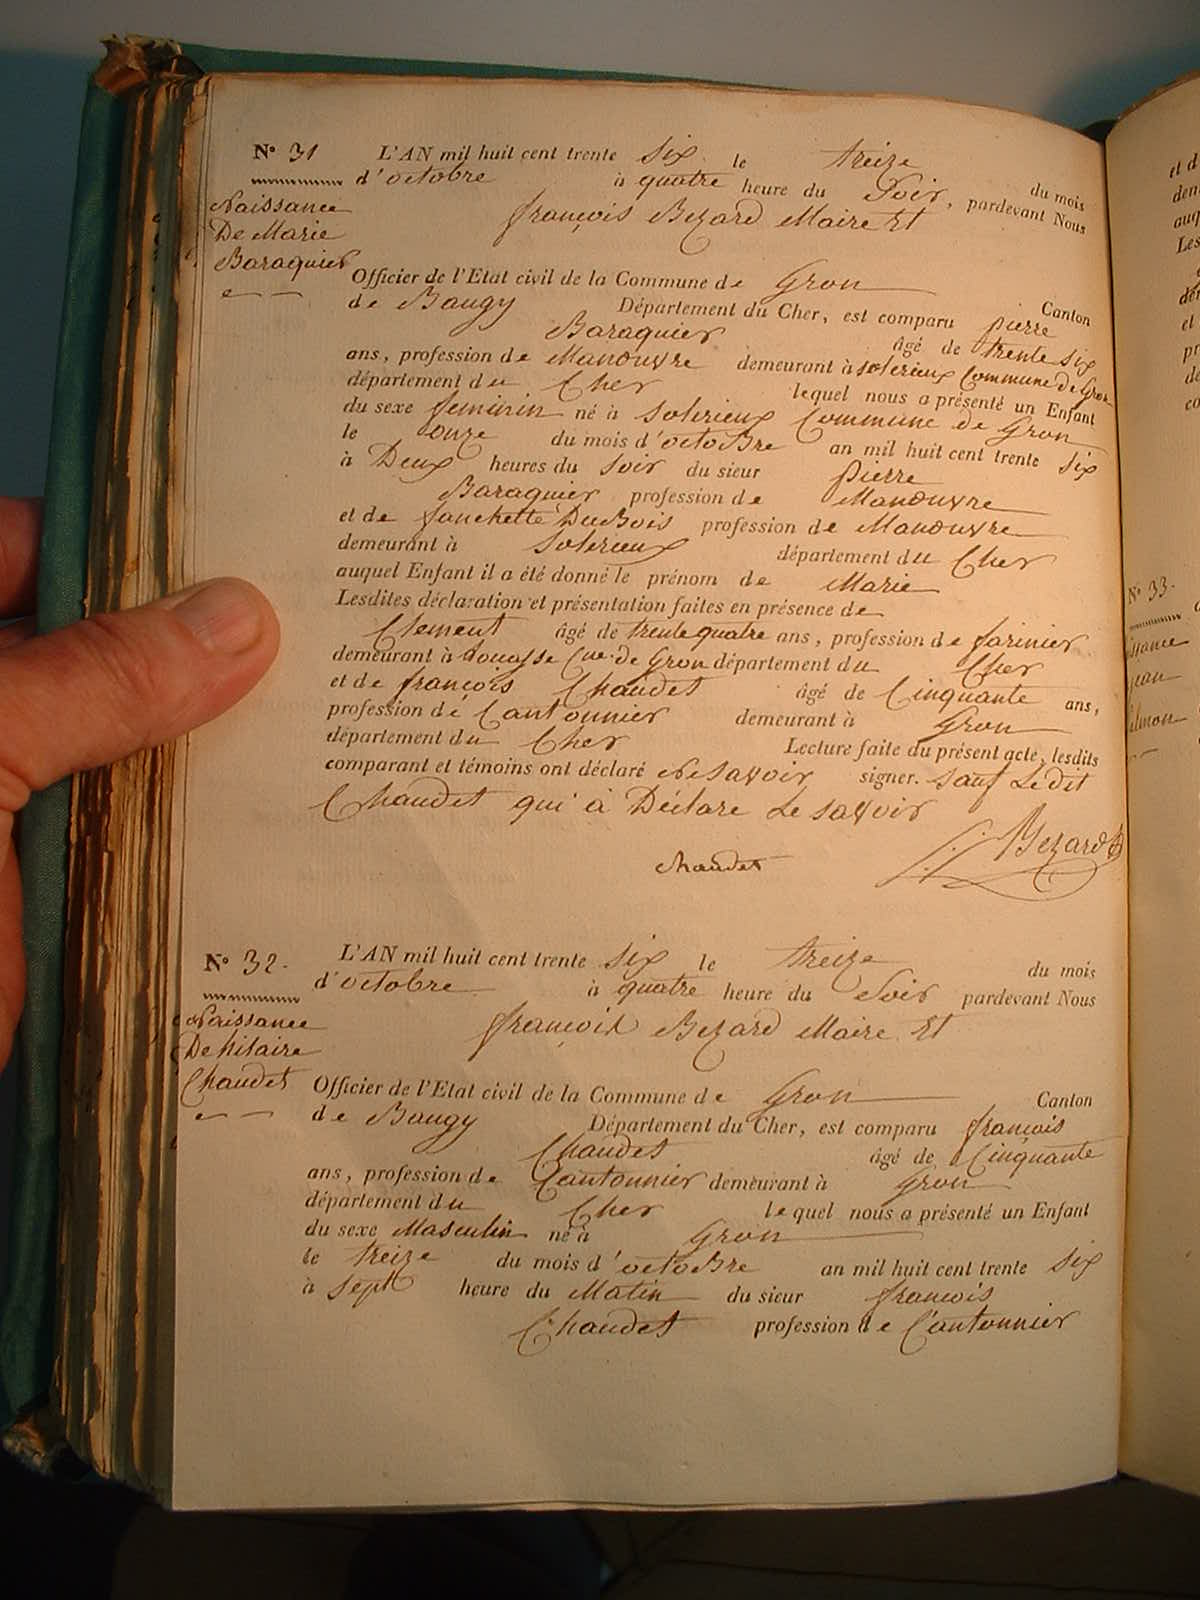 N° 31
Naissance
De Marie
Baraquier
L'AN mil huit cent trente six le treize du mois
d'octobre à quatre heure du Soir, pardevant Nous
françois Bezard Maire Et
Officier de l'Etat civil de la Commune de Gron Canton
de Baugy Département du Cher, est comparu pierre
Baraquier âgé de trente six
ans, profession de Manœuvre demeurant à solerieux Commune de Gron
département du Cher lequel nous a présenté un Enfant
du sexe feminin né à solerieux Commune de Gron
le onze du mois d'octobre an mil huit cent trente six
à Deux heures du soir du sieur pierre
Baraquier profession de Manœuvre
et de fanchette DuBois profession de Manœuvre
demeurant à solerieux département du Cher
auquel Enfant il a été donné le prénom de Marie
Lesdites déclaration et présentation faites en présence de
Clement âgé de trente quatre ans, profession de farinier
demeurant à Cne de Gron département du Cher
et de françois Chaudet âgé de Cinquante ans,
profession de Cantonnier demeurant à Gron
département du Cher Lecture faite du présent acte, lesdits
comparant et témoins ont déclaré Ne savoir signer. sauf Le dit
Chaudet qui à Déclare Le savoir
Bezard
chaudet
N° 32.
Naissance
De hilaire
Chaudet
L'AN mil huit cent trente six le treize du mois
d'octobre à quatre heure du Soir pardevant Nous
françois Bezard Maire Et
Officier de l'Etat civil de la Commune de Gron Canton
de Baugy Département du Cher, est comparu françois
Chaudet âgé de Cinquante
ans, profession de Cantonnier demeurant à Gron
département du Cher lequel nous a présenté un Enfant
du sexe Masculin né à Gron
le treize du mois d'octobre an mil huit cent trente six
à sept heure du Matin du sieur françois
Chaudet profession de Cantonnier
et d
den
auq
Les
et
pr
de
co
N° 33.
issance
jean